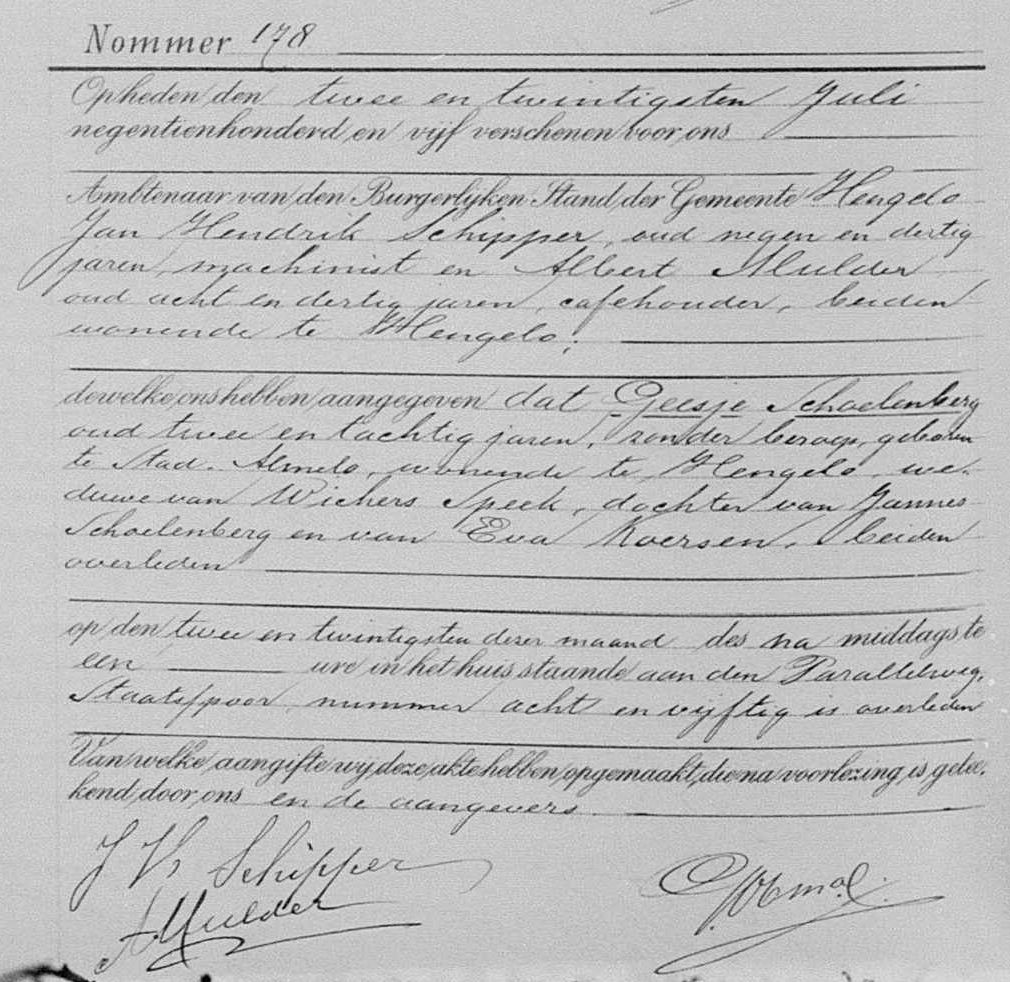 Nommer 178
Opheden den twee en twintigsten Juli
negentienhonderd en vijf verschenen voor ons
Ambtenaar van den Burgerlijken Stand der Gemeente Hengelo
Jan Hendrik Schipper, oud negen en dertig
jaren, machinist en Albert Mulder
oud acht en dertig jaren, cafehouder, beiden
wonende te Hengelo;
dewelke ons hebben aangegeven dat Geesje Schoelenberg
oud twee en tachtig jaren, zonder beroep, geboren
te Stad-Almelo, wonende te Hengelo, we-
duwe van Wichers Speek, dochter van Jannes
Schoelenberg en van Eva Koersen, beiden
overleden
op den twee en twintigsten dezer maand des na middags te
een ure in het huis staande aan den Parallelweg,
Staatsspoor nummer acht en vijftig is overleden
Van welke aangifte wij deze akte hebben opgemaakt, die na voorlezing is getee-
kend door ons en de aangevers.
J H Schipper
A Mulder